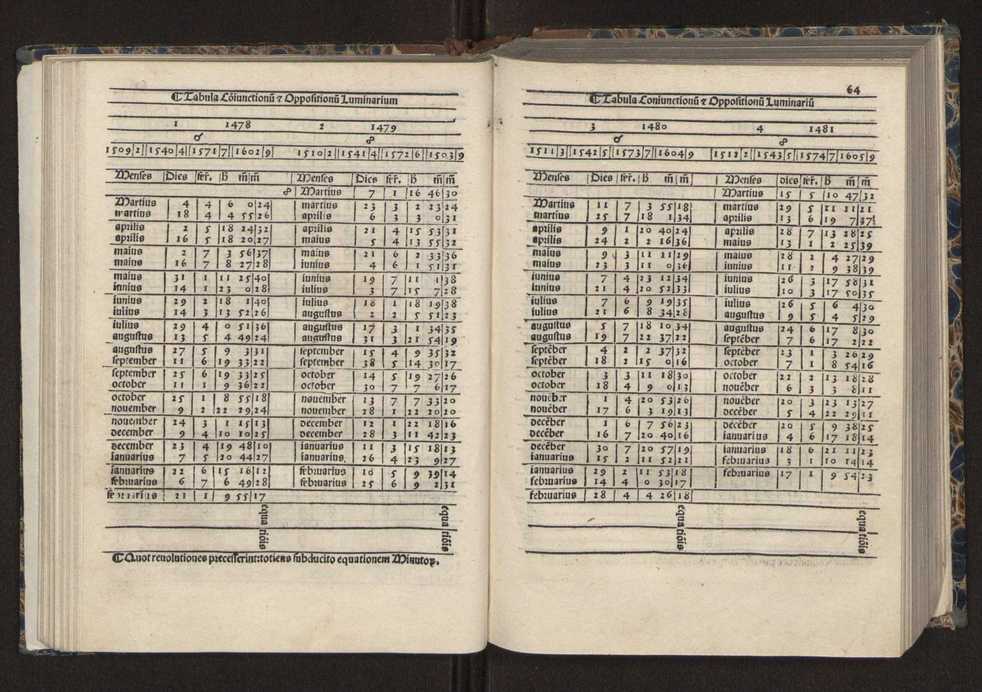 ☾ Tabula Cõiunctionũ ⁊ Oppositionũ Luminarium
1 1478 2 1479
☌ ☍
1509 2 1540 4 1571 7 1602 9 1510 2 1541 4 1572 6 1503 9
Menses Dies fer̃. h̃ m̃ m̃ Menses Dies fer̃. h̃ m̃ m̃
☍ Martius 7 1 16 46 30
Martius 4 4 6 0 24 martius 23 3 2 23 24
martius 18 4 4 55 26 aprilis 6 3 3 0 31
aprilis 2 5 18 24 32 aprilis 21 4 15 53 31
aprilis 16 5 18 20 27 maius 5 4 13 55 32
maius 2 7 3 56 37 maius 21 6 2 33 36
maius 16 7 8 27 28 iunius 4 6 1 51 31
maius 31 1 11 25 40 iunius 19 7 11 1 38
iunius 14 1 23 0 28 iulius 3 7 15 7 28
iunius 29 2 18 1 40 iulius 18 1 18 19 38
iulius 14 3 13 52 26 augustus 2 2 5 51 23
iulius 29 4 0 51 36 augustus 17 3 1 34 35
augustus 13 5 4 49 24 augustus 31 3 21 54 19
augustus 27 5 9 3 31 september 15 4 9 35 32
september 11 6 19 33 22 september 38 5 14 30 17
september 25 6 19 33 25 october 14 5 19 27 26
october 11 1 9 36 22 october 30 7 7 6 17
october 25 1 8 55 18 nouember 13 7 7 33 20
nouember 9 2 22 29 24 nouember 28 1 22 20 20
nouember 24 3 1 15 13 december 12 1 22 18 16
december 9 4 10 10 25 december 28 3 11 42 23
december 23 4 19 48 10 ianuarius 11 3 15 18 13
ianuarius 7 5 20 44 27 ianuarius. 26 4 23 9 27
ianuarius 22 6 15 16 12 februarius 10 5 9 39 14
februarius 6 7 6 49 28 februarius 25 6 9 2 31
februarius 21 1 9 55 17
equa tiõis equa tiõis
☾ Quot reuolutiones precesserint: totiens subducito equationem Minutoꝝ.
64
☾ Tabula Coniunctionũ ⁊ Oppositionũ Luminariũ
3 1480 4 1481
☌ ☍
1511 3 1542 5 1573 7 1604 9 1512 2 1543 5 1574 7 1605 9
Menses Dies fer̃. h̃ m̃ m̃ Menses dies fer̃. h̃ m̃ m̃
Martius 15 5 10 47 32
Martius 11 7 3 55 18 martius 29 5 11 11 21
martius 25 7 18 1 34 aprilis 13 6 19 7 37
aprilis 9 1 20 40 24 aprilis 28 7 13 28 25
aprilis 24 2 2 16 36 maius 13 1 2 25 39
maius 9 3 11 21 29 maius 28 2 4 27 29
maius 23 3 11 0 36 iunius 11 2 9 38 39
iunius 7 4 23 12 34 iunius 26 3 17 58 31
iunius 21 4 20 52 33 iulius 10 3 17 50 35
iulius 7 6 9 19 35 iulius 26 5 6 4 30
iulius 21 6 8 34 28 augustus 9 5 4 5 29
augustus 5 7 18 10 34 augustus 24 6 17 8 30
augustus 19 7 22 37 22 septẽber 7 6 17 2 22
septẽber 4 2 2 37 32 septẽber 23 1 3 26 29
septẽber 18 2 15 0 16 october 7 1 8 54 16
october 3 3 11 18 30 october 22 2 13 18 28
october 18 4 9 0 13 nouẽber 6 3 3 8 11
nouẽber 1 4 20 53 26 nouẽber 20 3 23 13 27
nouẽber 17 6 3 19 13 decẽber 5 4 22 29 11
decẽber 1 6 7 56 23 decẽber 20 5 9 38 25
decẽber 16 7 20 40 16 ianuarius 4 6 17 18 14
decẽber 30 7 20 57 19 ianuarius 18 6 21 11 23
ianuarius 15 2 11 52 21 februarius 3 1 10 14 14
ianuarius 29 2 11 53 18 februarius 17 1 9 54 23
februarius 14 4 0 30 17
februarius 28 4 4 26 18
equa tiõis equa tiõis